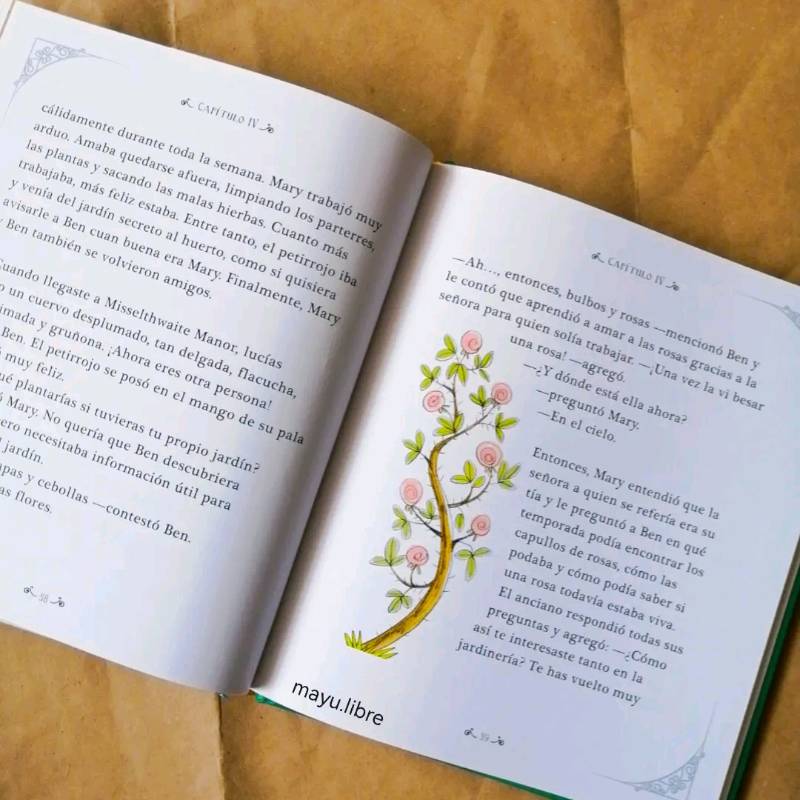 CAPÍTULO IV
cálidamente durante toda la semana. Mary trabajó muy
arduo. Amaba quedarse afuera, limpiando los parterres,
las plantas y sacando las malas hierbas. Cuanto más
trabajaba, más feliz estaba. Entre tanto, el petirrojo iba
y venía del jardín secreto al huerto, como si quisiera
avisarle a Ben cuan buena era Mary. Finalmente, Mary
y Ben también se volvieron amigos.
Cuando llegaste a Misselthwaite Manor, lucías
un cuervo desplumado, tan delgada, flacucha,
y gruñona. ¡Ahora eres otra persona!
Ben. El petirrojo se posó en el mango de su pala
muy feliz.
plantarías si tuvieras tu propio jardín?
Mary. No quería que Ben descubriera
necesitaba información útil para
jardín.
y cebollas —contestó Ben.
flores.
38
CAPÍTULO IV
—Ah…, entonces, bulbos y rosas —mencionó Ben y
le contó que aprendió a amar a las rosas gracias a la
señora para quien solía trabajar. —¡Una vez la vi besar
una rosa! —agregó.
—¿Y dónde está ella ahora?
—preguntó Mary.
—En el cielo.
Entonces, Mary entendió que la
señora a quien se refería era su
tía y le preguntó a Ben en qué
temporada podía encontrar los
capullos de rosas, cómo las
podaba y cómo podía saber si
una rosa todavía estaba viva.
El anciano respondió todas sus
preguntas y agregó: —¿Cómo
así te interesaste tanto en la
jardinería? Te has vuelto muy
39
mayu.libre